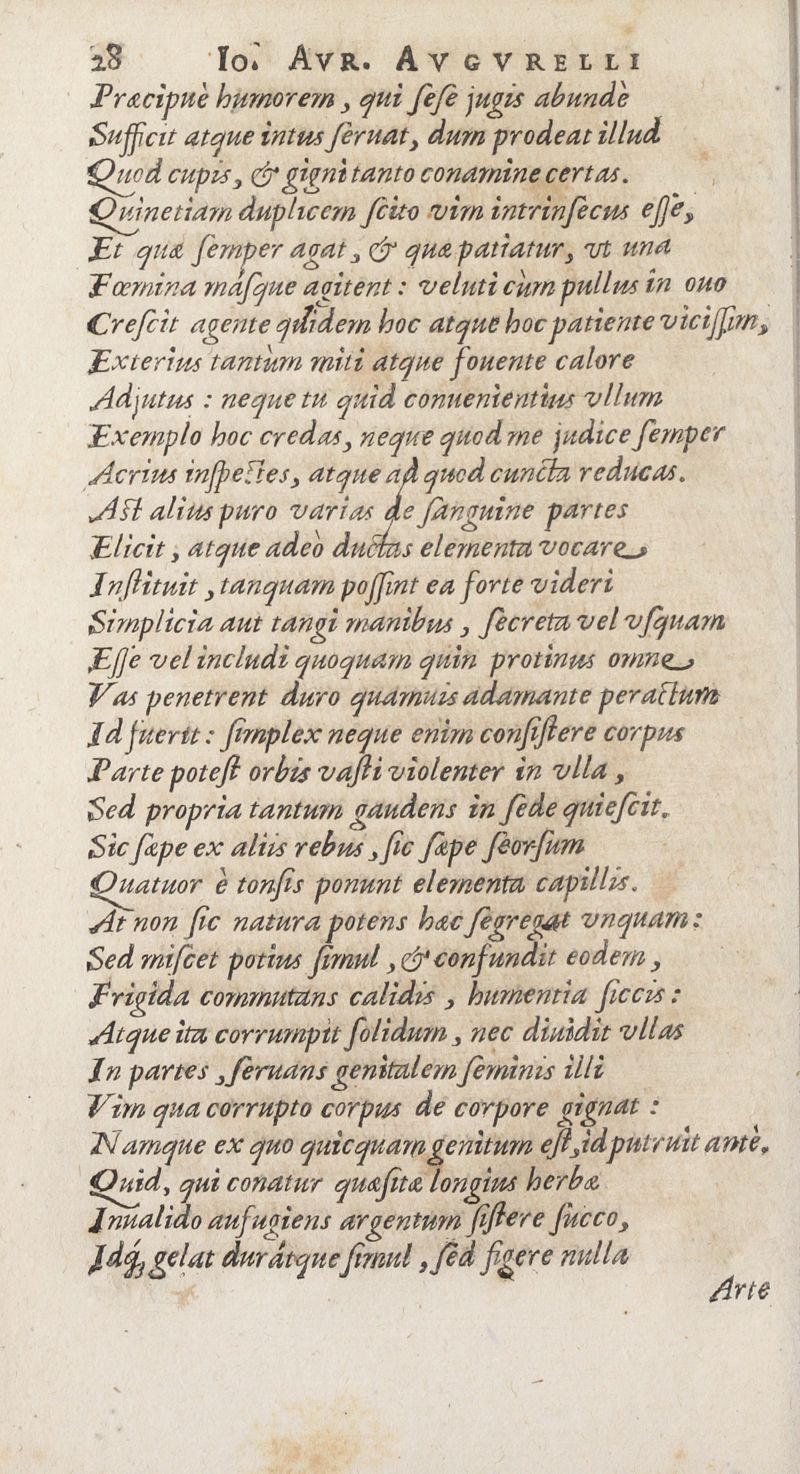 28 Io. AVR. AVGVRELLI
Præcipuè humorem, qui ſeſe jugis abundè
Sufficit atque intus ſeruat, dum prodeat illud
Quod cupis, & gigni tanto conamine certas.
Quinetiam duplicem ſcito vim intrinſecus eſſe,
Et quæ ſemper agat, & quæ patiatur, vt una
Fœmina máſque agitent: veluti cùm pullus in ouo
Creſcit agente quidem hoc atque hoc patiente viciſſim,
Exterius tantùm miti atque fouente calore
Adjutus: neque tu quid conuenientius vllum
Exemplo hoc credas, neque quod me judice ſemper
Acrius inſpectes, atque ad quod cuncta reducas.
Aſt alius puro varias de ſanguine partes
Elicit, atque adeò ductas elementa vocare
Inſtituit, tanquam poſſint ea forte videri
Simplicia aut tangi manibus, ſecreta vel vſquam
Eſſe vel includi quoquam quin protinus omne
Vas penetrent duro quamuis adamante peractum
Id fuerit: ſimplex neque enim conſiſtere corpus
Parte poteſt orbis vaſti violenter in vlla,
Sed propria tantum gaudens in ſede quieſcit.
Sic ſæpe ex aliis rebus, ſic ſæpe ſeorſum
Quatuor è tonſis ponunt elementa capillis.
At non ſic natura potens hæc ſegregat vnquam:
Sed miſcet potius ſimul, & confundit eodem,
Frigida commutans calidis, humentia ſiccis:
Atque ita corrumpit ſolidum, nec diuidit vllas
In partes, ſeruans genitalem ſeminis illi
Vim qua corrupto corpus de corpore gignat:
Namque ex quo quicquam genitum eſt, id putruit antè.
Quid, qui conatur quæſitæ longius herbæ
Inualido aufugiens argentum ſiſtere ſucco,
Idq́; gelat durátque ſimul, ſed figere nulla
Arte